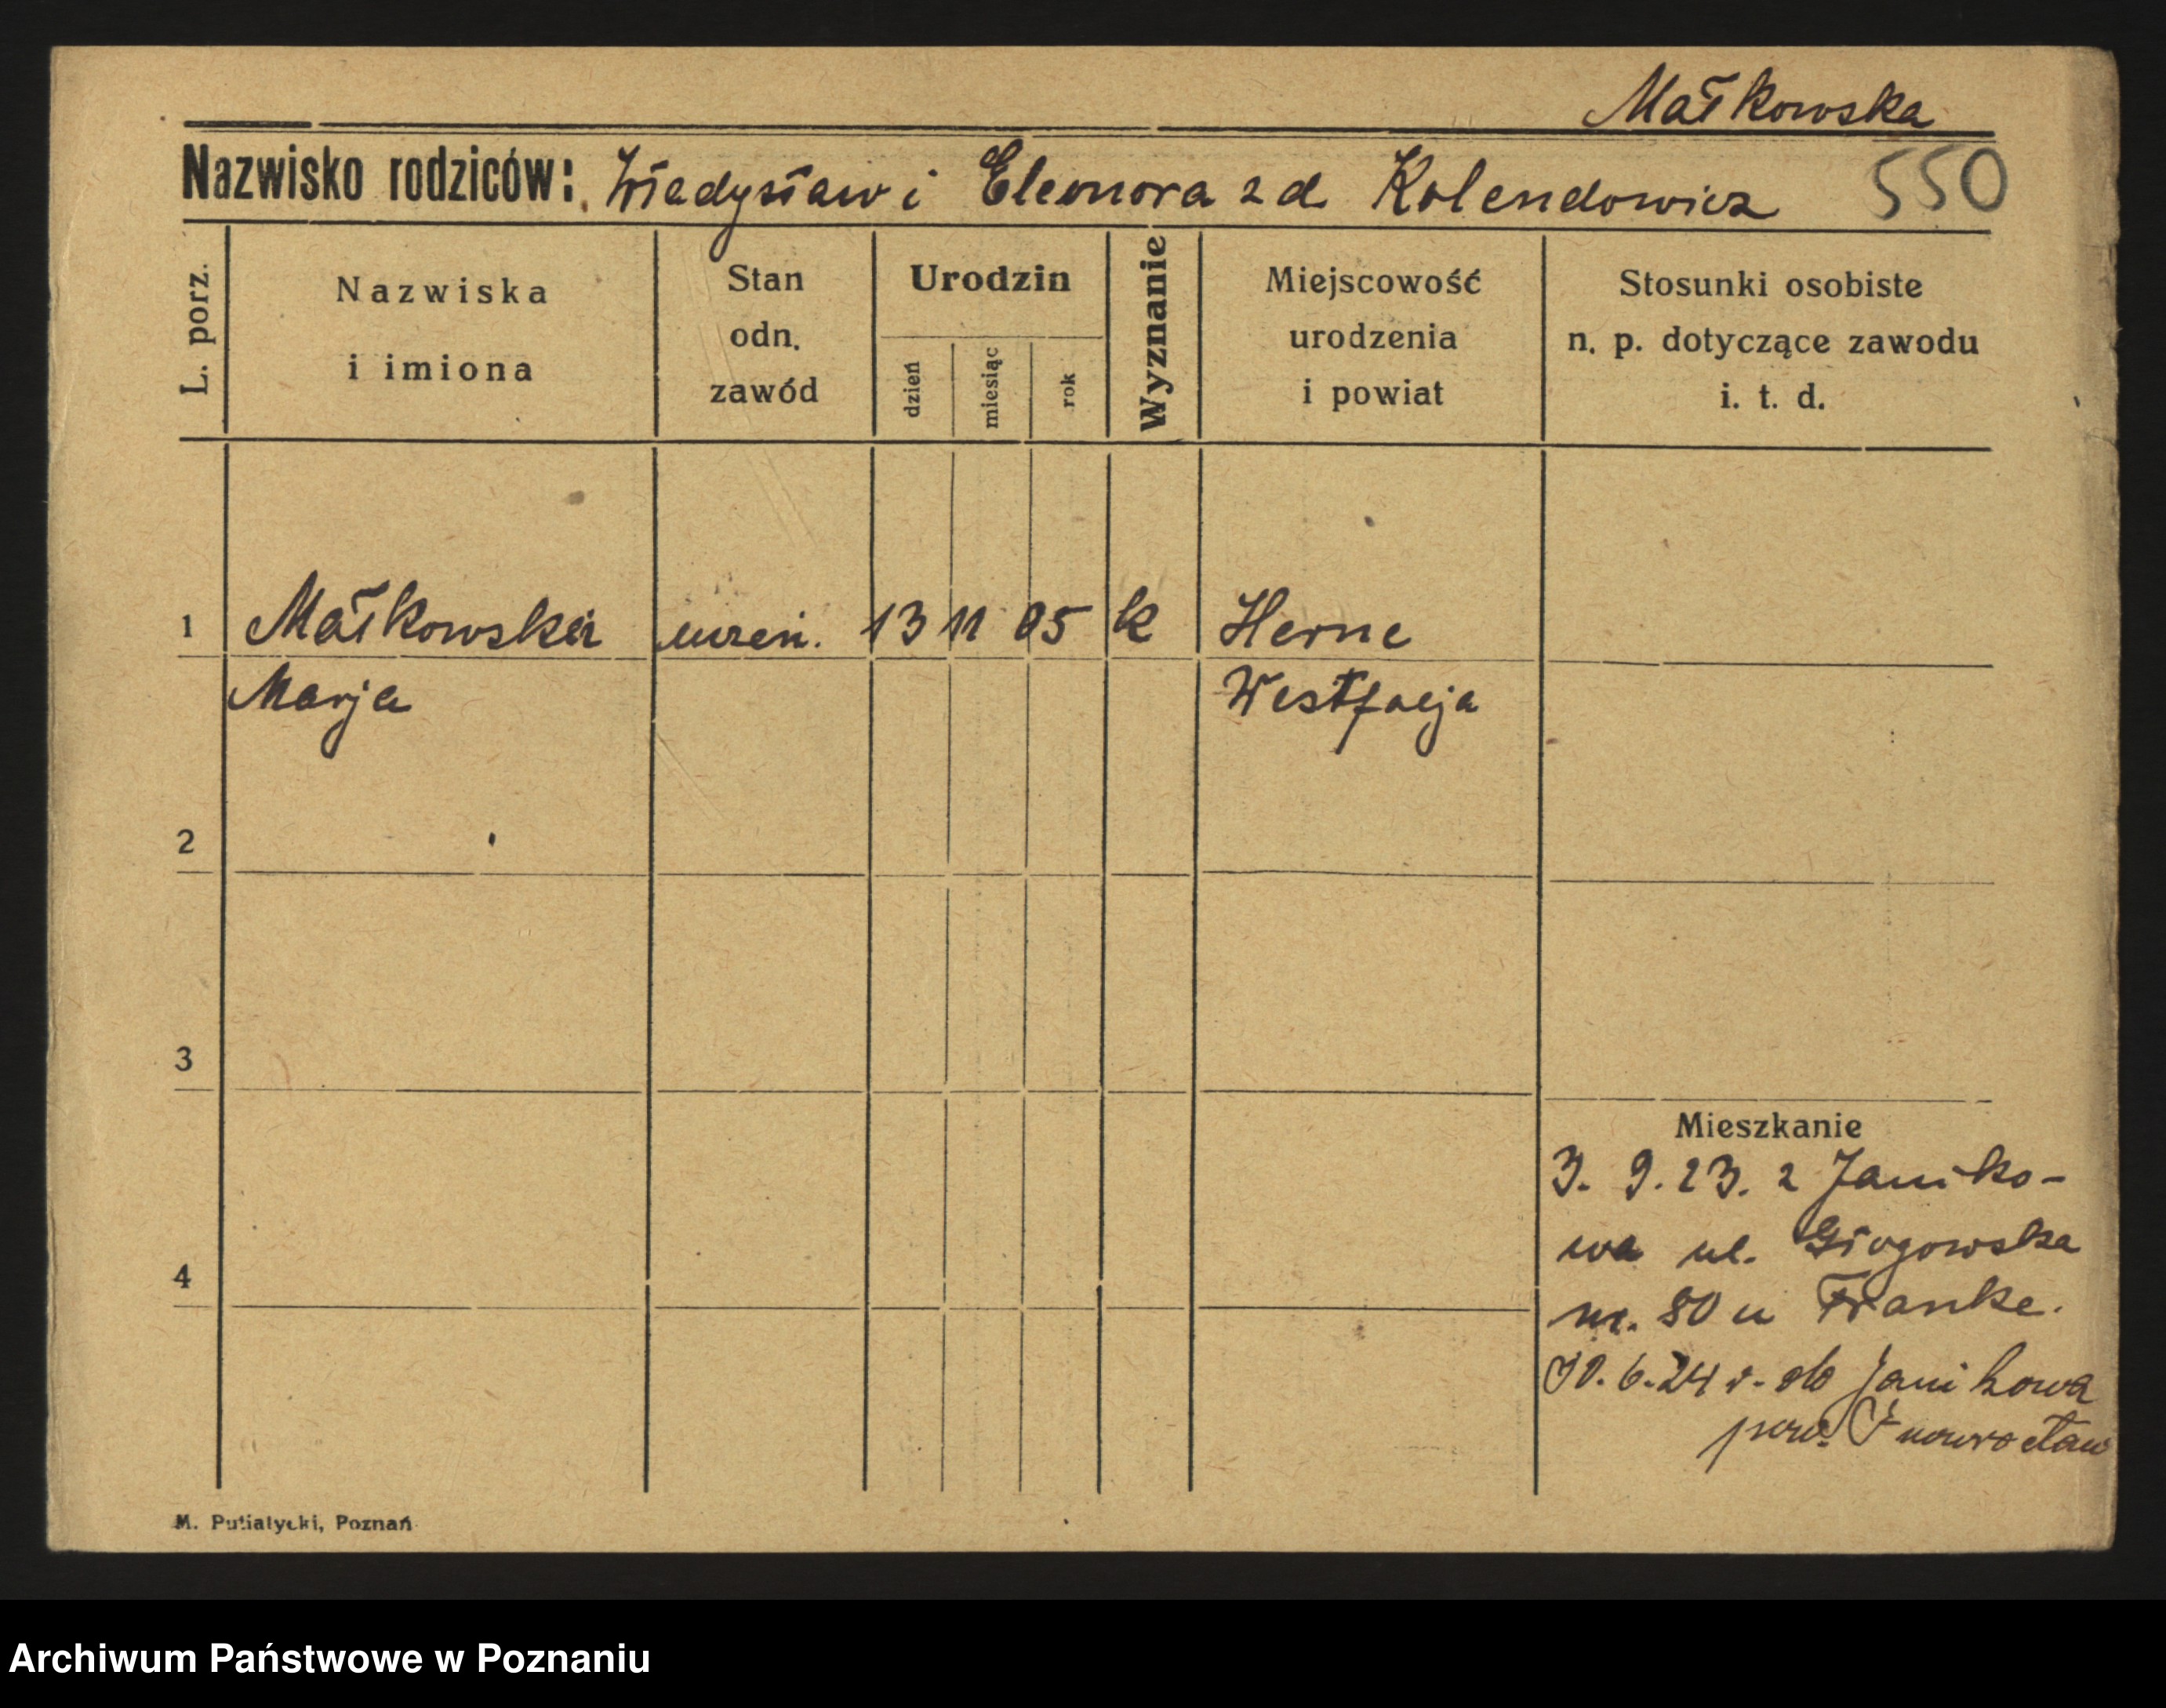 Małkowska
Nazwisko rodziców: Władysław i Eleonora z d Kolendowicz 550
L. porz.
Nazwiska
i imiona
Stan
odn.
zawód
Urodzin
dzień
miesiąc
rok
Wyznanie
Miejscowość
urodzenia
i powiat
Stosunki osobiste
n. p. dotyczące zawodu
i. t. d.
1 Małkowska uczeń. 13 11 05 k Herne
Marja Westfalja
2
3
4
Mieszkanie
3. 9. 23. z Janiko-
wa ul. Głogowska
nr. 80 u Franke.
30. 6. 24 r. do Janikowa
pow. Inowrocław
M. Putiatycki, Poznań
Archiwum Państwowe w Poznaniu